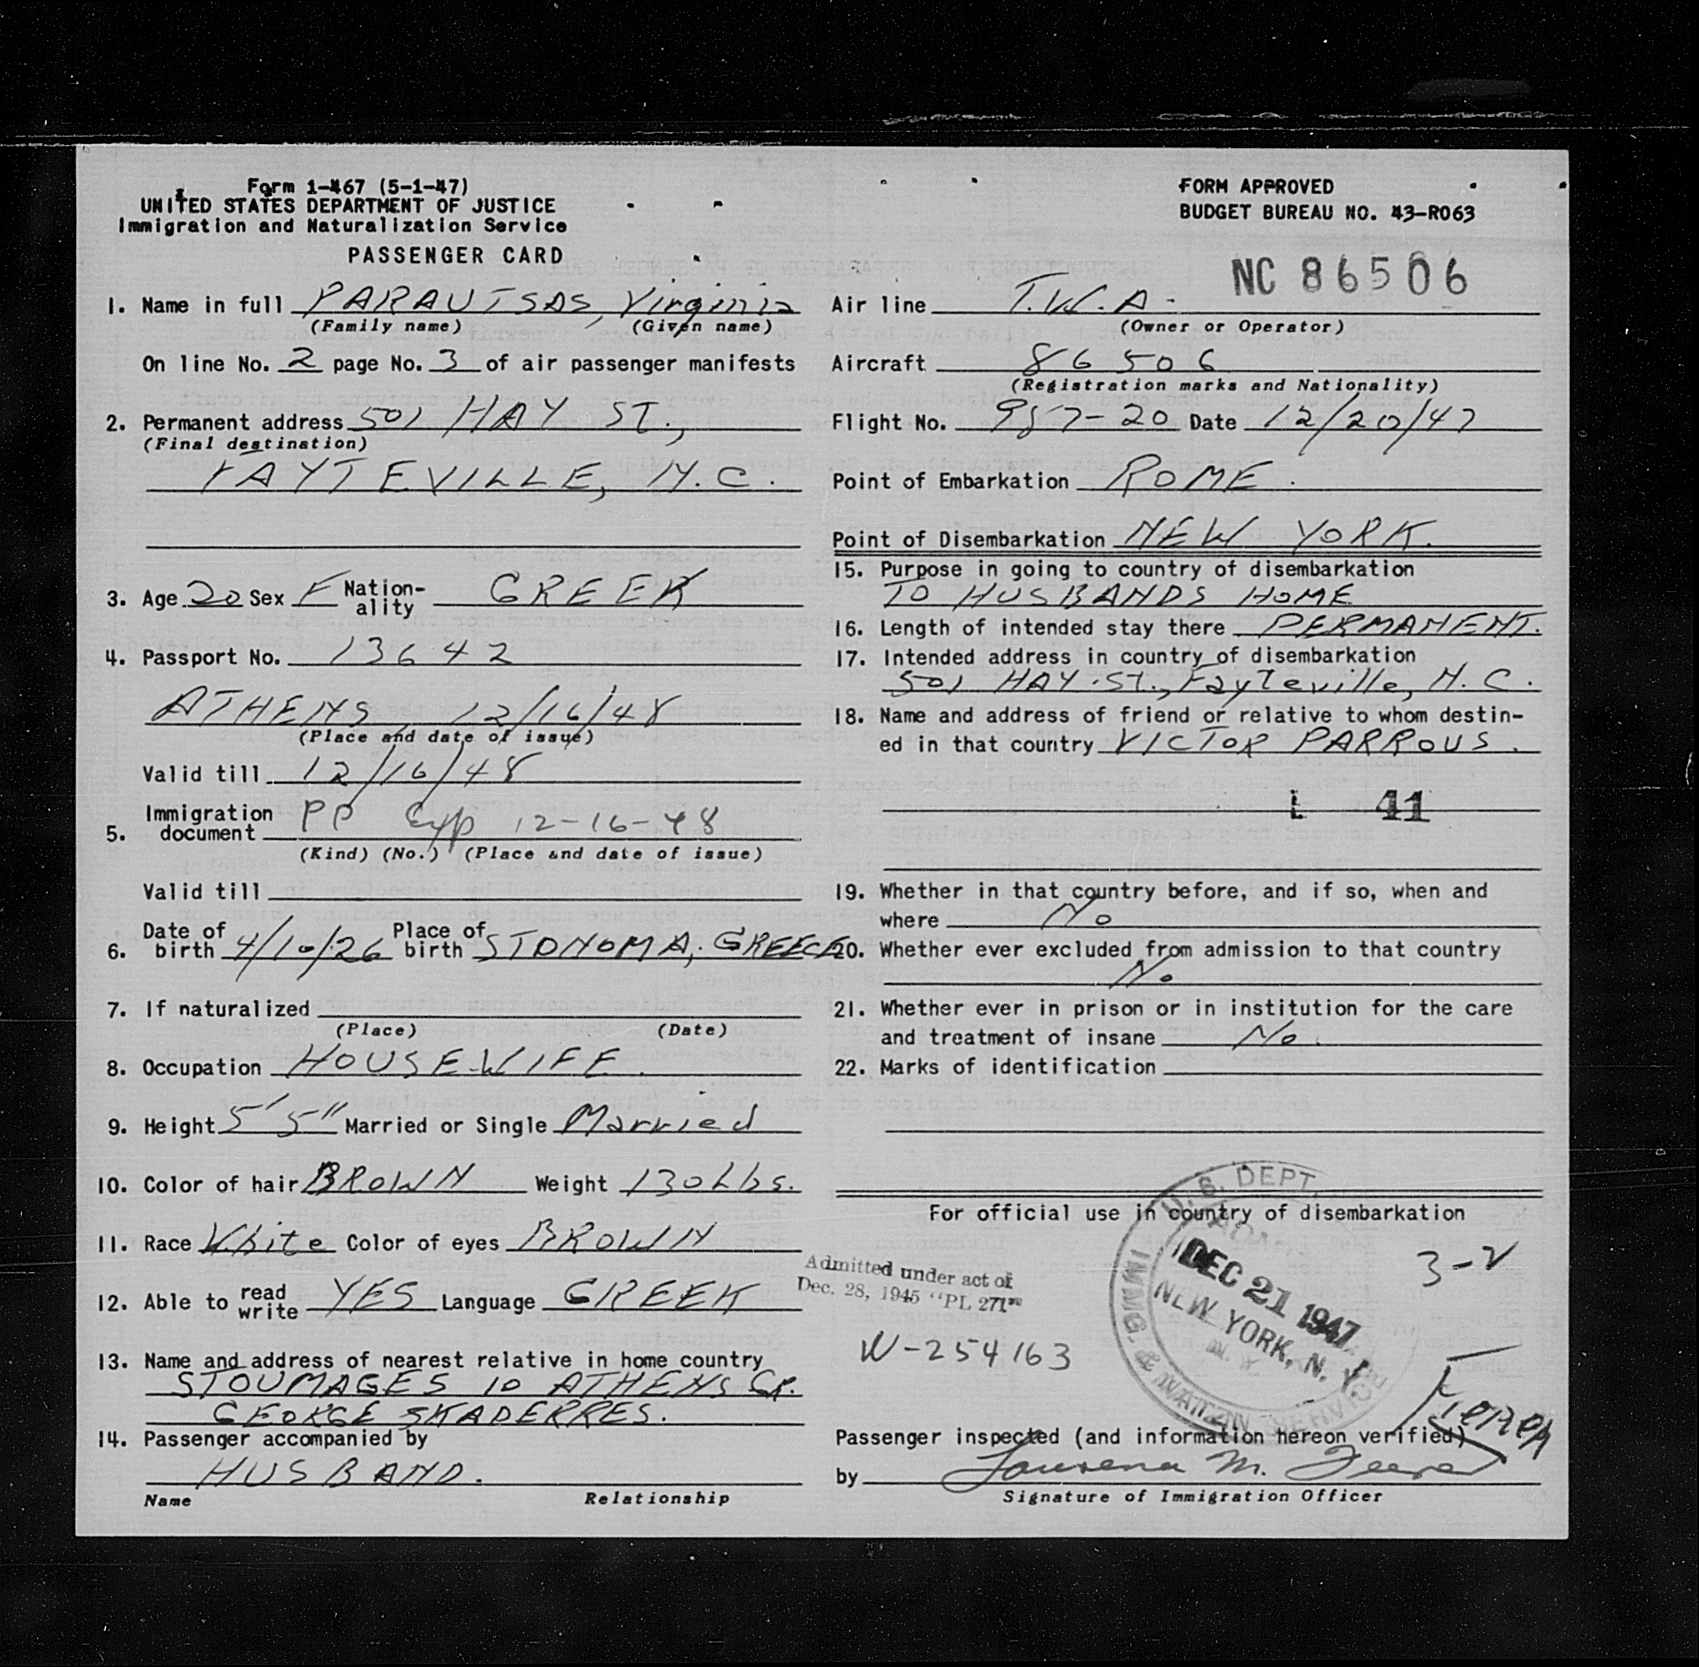 Form 1-467 (5-1-47)
UNITED STATES DEPARTMENT OF JUSTICE
Immigration and Naturalization Service
PASSENGER CARD
FORM APPROVED
BUDGET BUREAU NO. 43-R063
NC 86506
1. Name in full PARAUTSAS, Virginia
(Family name) (Given name)
On line No. 2 page No. 3 of air passenger manifests
2. Permanent address 501 HAY ST.,
(Final destination)
FAYTEVILLE, N.C.
3. Age 20 Sex F Nation-ality GREEK
4. Passport No. 13642
ATHENS, 12/16/48
(Place and date of issue)
Valid till 12/16/48
5. Immigration document PP Exp 12-16-48
(Kind) (No.) (Place and date of issue)
Valid till
6. Date of birth 4/10/26 Place of birth STONOMA, GREECE
7. If naturalized
(Place) (Date)
8. Occupation HOUSEWIFE.
9. Height 5' 5" Married or Single Married
10. Color of hair BROWN Weight 130 Lbs.
11. Race White Color of eyes BROWN
12. Able to read write YES Language GREEK
13. Name and address of nearest relative in home country
STOUMAGES 10 ATHENS GR.
GEORGE SKADERRES.
14. Passenger accompanied by
HUSBAND.
Name Relationship
Air line T.W.A.
(Owner or Operator)
Aircraft 86506
(Registration marks and Nationality)
Flight No. 957-20 Date 12/20/47
Point of Embarkation ROME.
Point of Disembarkation NEW YORK.
15. Purpose in going to country of disembarkation
TO HUSBANDS HOME
16. Length of intended stay there PERMANENT.
17. Intended address in country of disembarkation
501 HAY ST., Fayteville, N.C.
18. Name and address of friend or relative to whom destin-
ed in that country VICTOR PARROUS.
L 41
19. Whether in that country before, and if so, when and
where No
20. Whether ever excluded from admission to that country
No
21. Whether ever in prison or in institution for the care
and treatment of insane No.
22. Marks of identification
For official use in country of disembarkation
Admitted under act of
Dec. 28, 1945 "PL 271"
W-254163
U.S. DEPT.
DEC 21 1947
NEW YORK, N.Y.
IMMG. & NATZN. SERVICE
3-2
Passenger inspected (and information hereon verified)
by
Signature of Immigration Officer